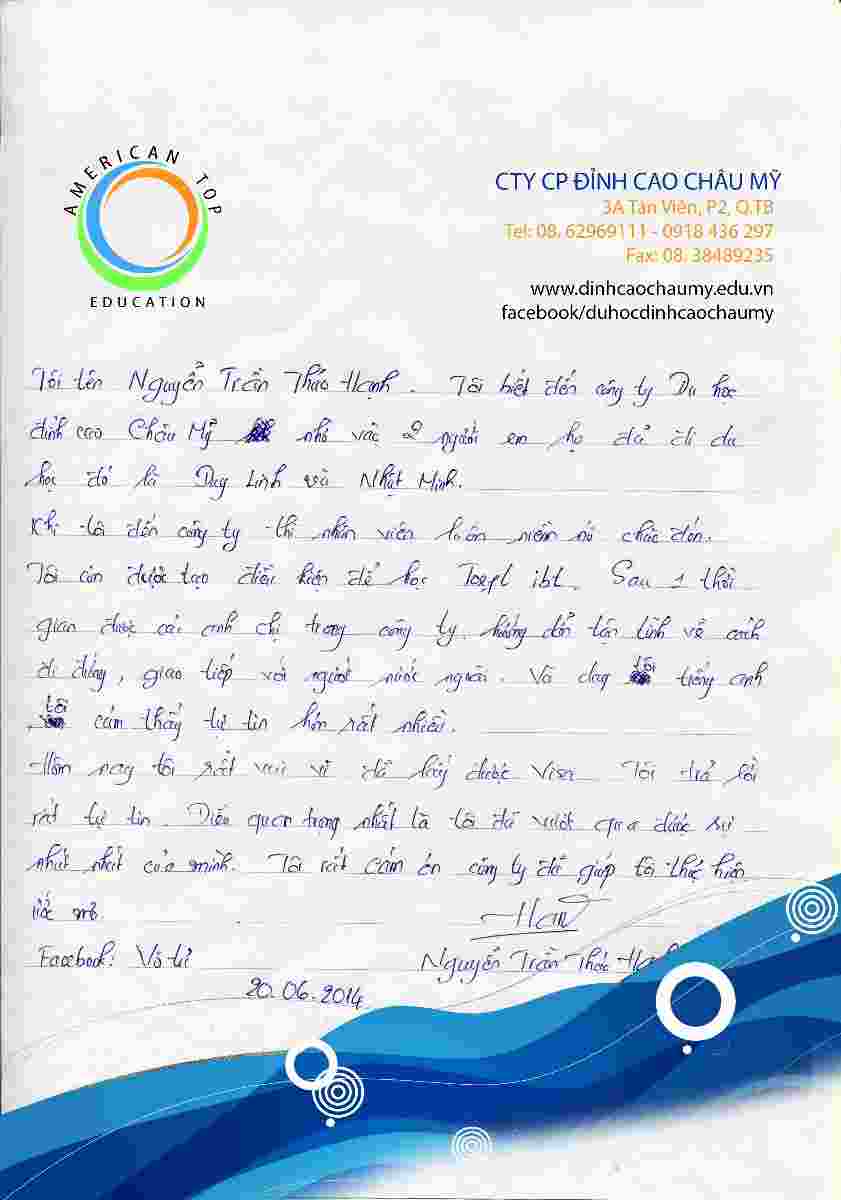 AMERICAN TOP
EDUCATION
CTY CP ĐỈNH CAO CHÂU MỸ
3A Tản Viên, P2, Q.TB
Tel: 08. 62969111 - 0918 436 297
Fax: 08. 38489235
www.dinhcaochaumy.edu.vn
facebook/duhocdinhcaochaumy
Tôi tên Nguyễn Trần Thảo Hạnh. Tôi biết đến công ty Du học
đỉnh cao Châu Mỹ nhờ vào 2 người em họ đã đi du
học đó là Duy Linh và Nhật Minh.
Khi tôi đến công ty thì nhân viên luôn niềm nở chào đón.
Tôi còn được tạo điều kiện để học Toefl ibt. Sau 1 thời
gian được các anh chị trong công ty hướng dẫn tận tình về cách
đi đứng, giao tiếp với người nước ngoài. Và dạy tôi tiếng anh
, tôi cảm thấy tự tin hơn rất nhiều.
Hôm nay tôi rất vui vì đã lấy được Visa. Tôi trả lời
rất tự tin. Điều quan trọng nhất là tôi đã vượt qua được sự
nhút nhát của mình. Tôi rất cảm ơn công ty đã giúp tôi thực hiện
ước mơ.
Facebook: Vô tư
Nguyễn Trần Thảo Hạnh
20.06.2014